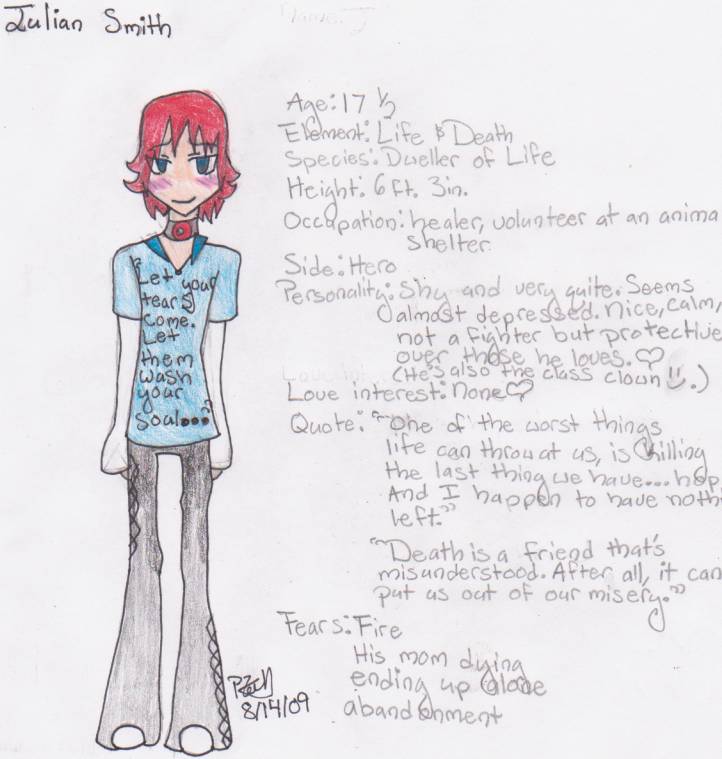 Julian Smith
Age: 17 ½
Element: Life & Death
Species: Dweller of Life
Height: 6 ft. 3in.
Occupation: healer, volunteer at an anima
shelter
Side: Hero
Personality: Shy and very quite. Seems
almost depressed. nice, calm,
not a fighter but protective
over those he loves. ♡
(He's also the class clown ☺.)
Love interest: none ♡
Quote: "One of the worst things
life can throw at us, is killing
the last thing we have... hop
And I happen to have nothi
left."
"Death is a friend that's
misunderstood. After all, it can
put us out of our misery."
Fears: Fire
His mom dying
ending up alone
abandonment
"Let your
tears
come.
Let
them
wash
your
soul..."
8/14/09